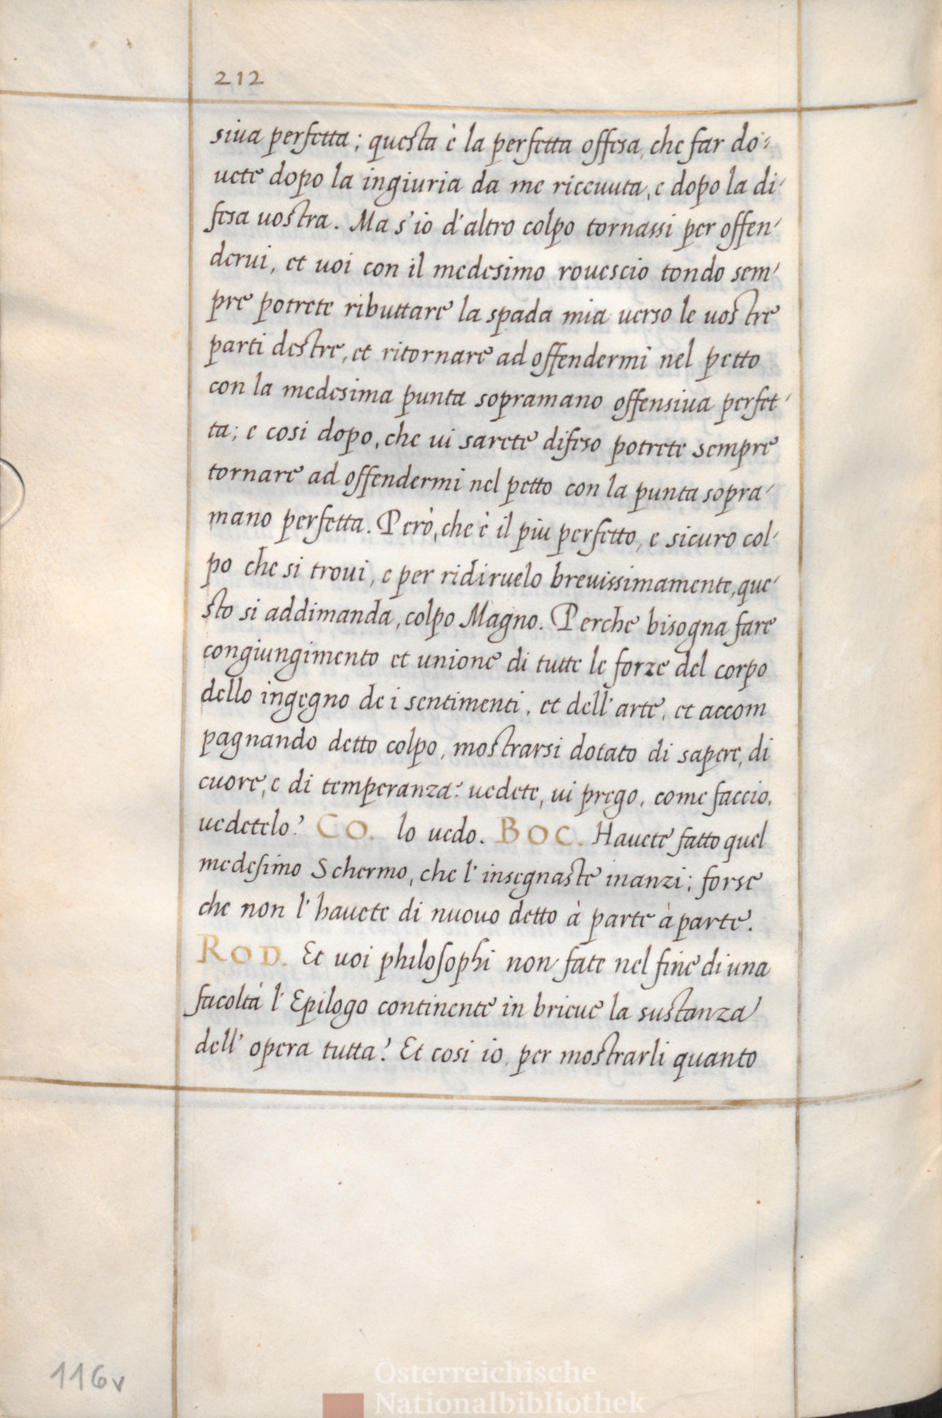 212
siua perfetta; questa è la perfetta offesa, che far do-
uete dopo la ingiuria da me riceuuta, e dopo la di-
fesa uostra. Ma s'io d'altro colpo tornassi per offen-
derui, et uoi con il medesimo rouescio tondo sem-
pre potrete ributtare la spada mia uerso le uostre
parti destre, et ritornare ad offendermi nel petto
con la medesima punta sopramano offensiua perfet-
ta; e cosi dopo, che ui sarete difeso potrete sempre
tornare ad offendermi nel petto con la punta sopra-
mano perfetta. Però, che è il piu perfetto, e sicuro col-
po che si troui, e per ridiruelo breuissimamente, que-
sto si addimanda, colpo Magno. Perche bisogna fare
congiungimento et unione di tutte le forze del corpo
dello ingegno de i sentimenti, et dell'arte, et accom
pagnando detto colpo, mostrarsi dotato di sapere, di
cuore, e di temperanza: uedete, ui prego, come faccio,
uedetelo? CO. lo uedo. BOC. Hauete fatto quel
medesimo Schermo, che l'insegnaste inanzi; forse
che non l'hauete di nuouo detto à parte à parte.
ROD. Et uoi philosophi non fate nel fine di una
facoltà l'Epilogo continente in brieue la sustanza
dell'opera tutta? Et cosi io, per mostrarli quanto
116v
Österreichische
Nationalbibliothek